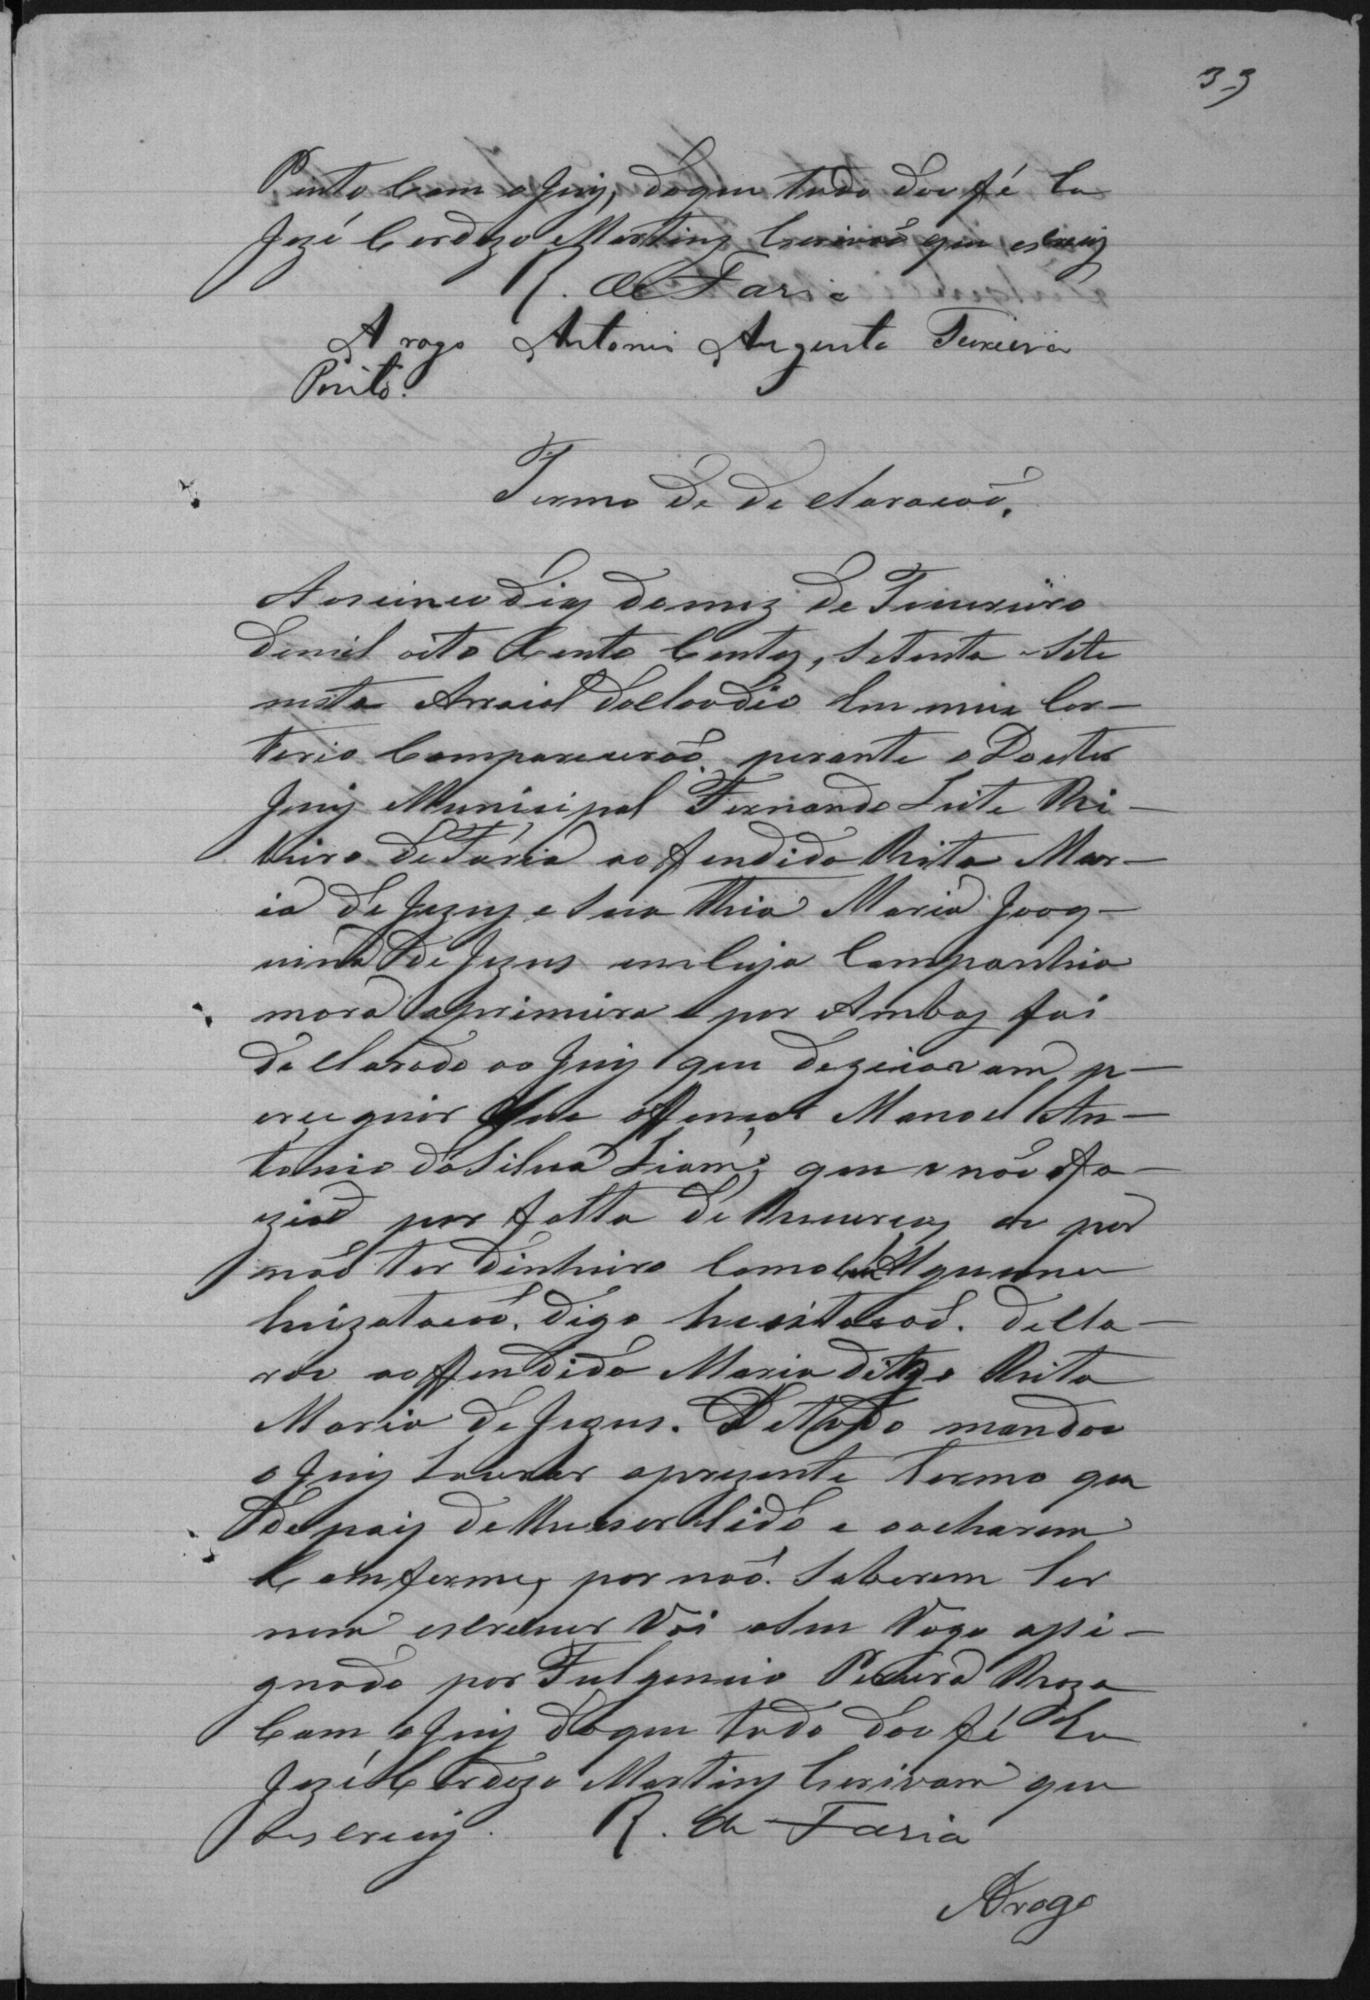 33
Pinto Com o Juiz, doque tudo dou fé Eu
Jozé Cardozo Martins Escrivaõ que escrevy
R. de Faria
A rogo Antonio Augusto Teixeira
Pinto.
Termo de declaracaõ.
Aos cinco dias do mez de Fevereiro
de mil oito Cento Centos, Setenta e Sete
nesta Arraial do Claudio Em meu Car-
torio Compareceraõ perante o Doutor
Juiz Municipal Fernando Leite Ri-
beiro de Faria a offendida Rita Mar-
ia de Jezus e Sua Thia Maria Joaq-
uina de Jezus em Cuja Companhia
mora a primeira e por Ambas foi
declarado ao Juiz que dezejavam p-
erceguir Seu offencor Manoel An-
tonio da Silva Liam, que e naõ fa-
ziaõ por falta de Recurcos e por
naõ ter dinheiro Como Alguma
hizatacaõ, digo hesitacaõ. decla-
rou a offendida Maria ditgo Rita
Maria de Jezus. De tudo mandou
o Juiz Lavrar o prezente termo que
depois de lhes ser lido e o acharem
Conforme, por naõ Saberem Ler
nem escrever Vai a Seu Rogo assi-
gnado por Fulgencio Pereira Roza
Com o Juiz do que tudo dou fé Eu
Jozé Cardozo Martins Escrivam que
escrevy. R. de Faria
A rogo